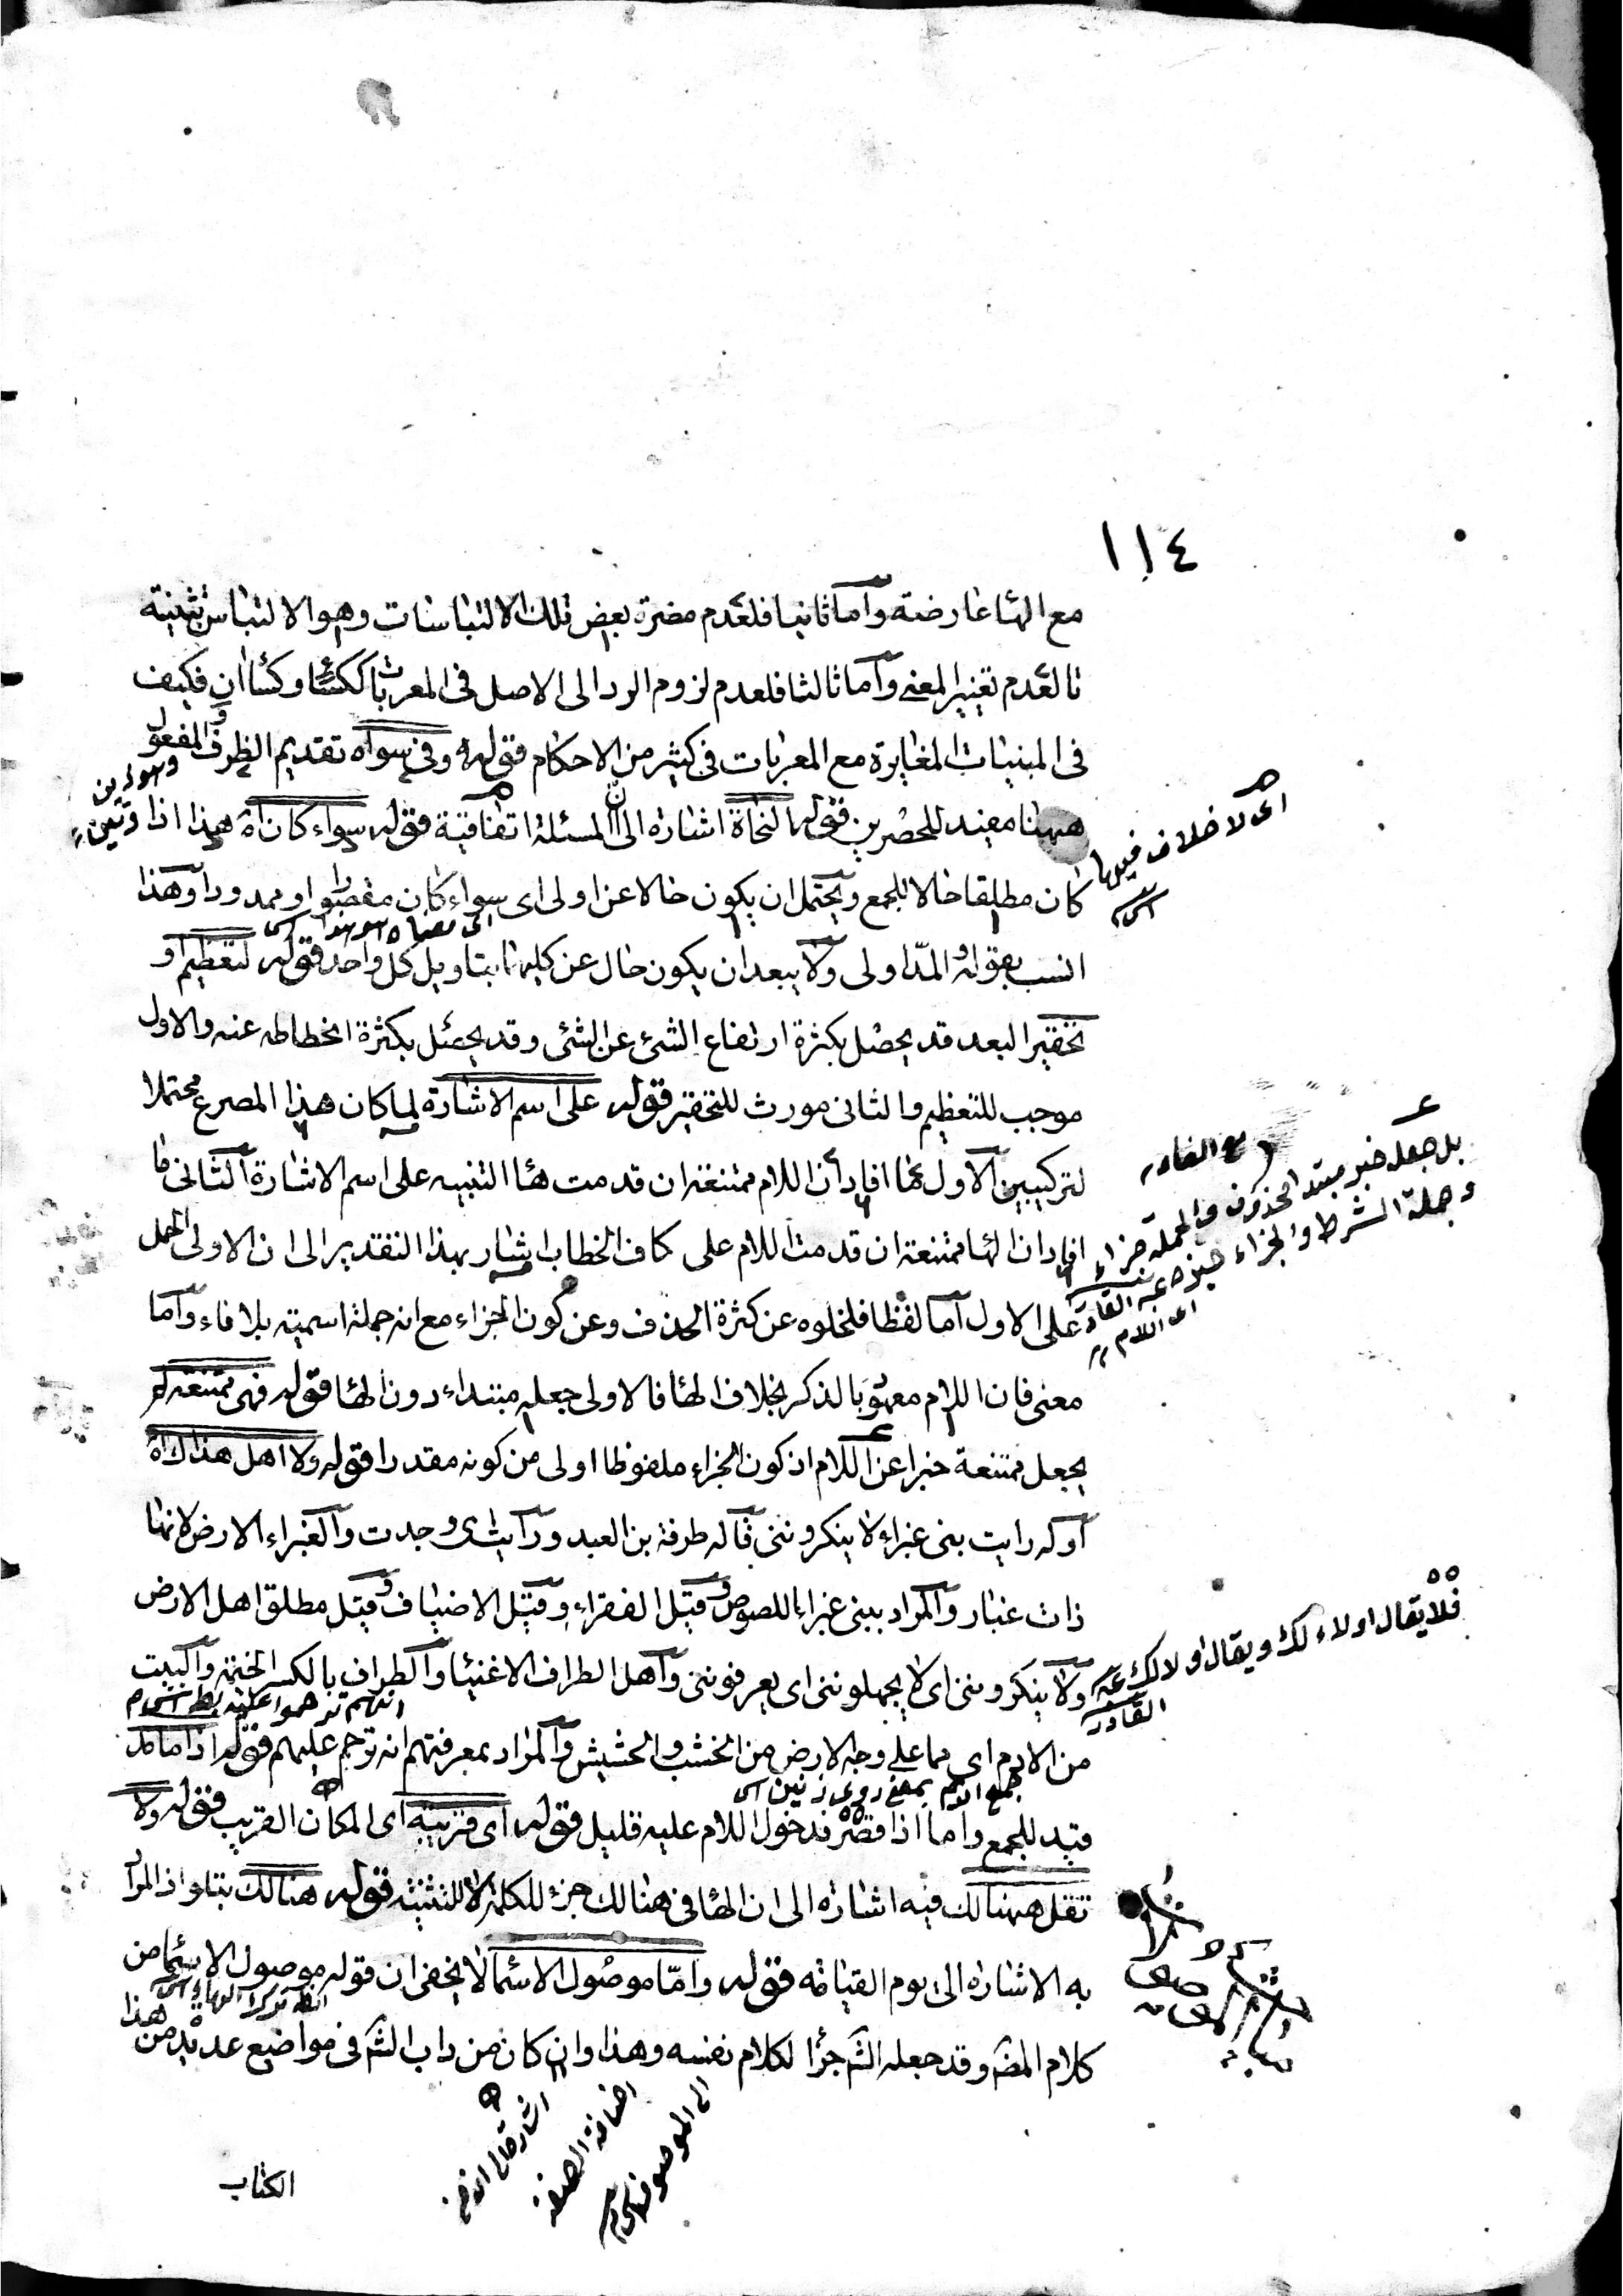 ١١٤
مع الهاء عارضة وأما ثانيا فلعدم مضرة بعض تلك الالتباسات وهو الالتباس بتثنية
تا لعدم تغيير المعنى وأما ثالثا فلعدم لزوم الرد الى الاصل فى المعربات ككساء وكساان فكيف
فى المبنيات المغايرة مع المعربات فى كثير من الاحكام قوله وفى سواه تقديم الظرف والمفعول
ههنا مفيد للحصرين قوله النحاة اشارة الى ان المسئلة اتفاقية قوله سواء كان اه هذا اذا
كان مطلقا حالا للجمع ويحتمل ان يكون حالا عن اولى اى سواء كان مقصورا او ممدودا وهذا
انسب بقوله والمدّ اولى ولا يبعد ان يكون حال عن كليهما بتاويل كل واحد قوله لتعظيم او
تحقير البعد قد يحصل بكثرة ارتفاع الشئ عن الشئ وقد يحصل بكثرة انحطاطه عنه والاول
موجب للتعظيم والثانى مورث للتحقير قوله على اسم الاشارة لما كان هذا المصرع محتملا
لتركيبين الاول ما افاد أن اللام ممتنعة ان قدمت هاء التنبيه على اسم الاشارة الثانى ما
افاد ان الهاء ممتنعة ان قدمت اللام على كاف الخطاب اشار بهذا التقدير الى ان الاولى الحمل
على الاول أما لفظا فلخلوه عن كثرة الحذف وعن كون الجزاء مع انه جملة اسمية بلا فاء وأما
معنى فان اللام معهود بالذكر بخلاف الهاء فالاولى جعله مبتداء دون الهاء قوله فهى ممتنعة لم
يجعل ممتنعة خبرا عن اللام اذ كون الجزاء ملفوظا اولى من كونه مقدرا قوله ولا اهل هذاك اه
أوله رايت بنى غبراء لا ينكروننى قاله طرفة بن العبد ورايت اى وجدت والغبراء الارض لانها
ذات غبار والمراد ببنى غبراء اللصوص وقيل الفقراء وقيل الاضياف وقيل مطلق اهل الارض
ولا ينكروننى اى لا يجهلوننى اى يعرفوننى وأهل الطراف الاغنياء والطراف بالكسر الخيمة والبيت
من الادم اى مما على وجه الارض من الخشب والحشيش والمراد بمعرفتهم انه ترحم عليهم قوله اذا ما مد
قيد للجمع واما اذا قصر فدخول اللام عليه قليل قوله اى قريبه اى المكان القريب قوله ولا
تقل ههنالك فيه اشارة الى ان الهاء فى هنالك جزء للكلمة لا للتنبيه قوله هنالك تبتلوا اذ المراد
به الاشارة الى يوم القيامة قوله وأمّا موصول الاسماء لا يخفى ان قوله موصول الاسماء من
كلام المص وقد جعله الش جزأ لكلام نفسه وهذا وان كان من داب الش فى مواضع عديدة من هذا
الكتاب
اى لا خلاف فيها
بل جعل خبر مبتدا محذوف والجملة جزاء
وجملة الشرط والجزاء خبر
اى اللام
فلا يقال اولاء لك ويقال اولالك
جمع الادم بمعنى روى زمين
اضافة الصفة
الى الموصوف